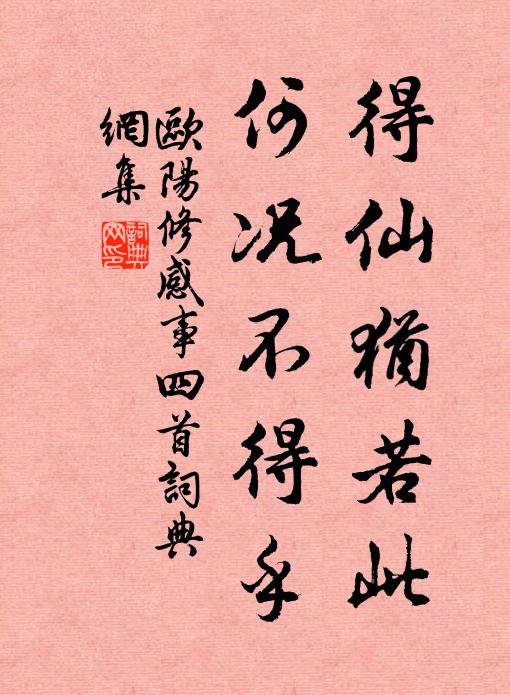 得仙猶若此
何况不得乎
歐陽修感事四首詞典
網集
詞典
网印